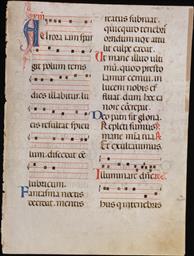 Aurora iam spar
git polum terris
dies illabitur lu
cis resultat spicu
lum discedat
lubricum
Fantasma noctis
decidat mentis
reatus subruat
quicquid tenebris
orridum nox attu
lit culpe cadat
Ut mane illud ulti
mū quod presto
lamur cernui in
lucem nobis ef
fluat dum hec ca
nore concrepat
Deo patri sit gloria
Repleti sumus
mane mīa tua
Et exultavimus
Illuminare dñe
his qui in tenebris